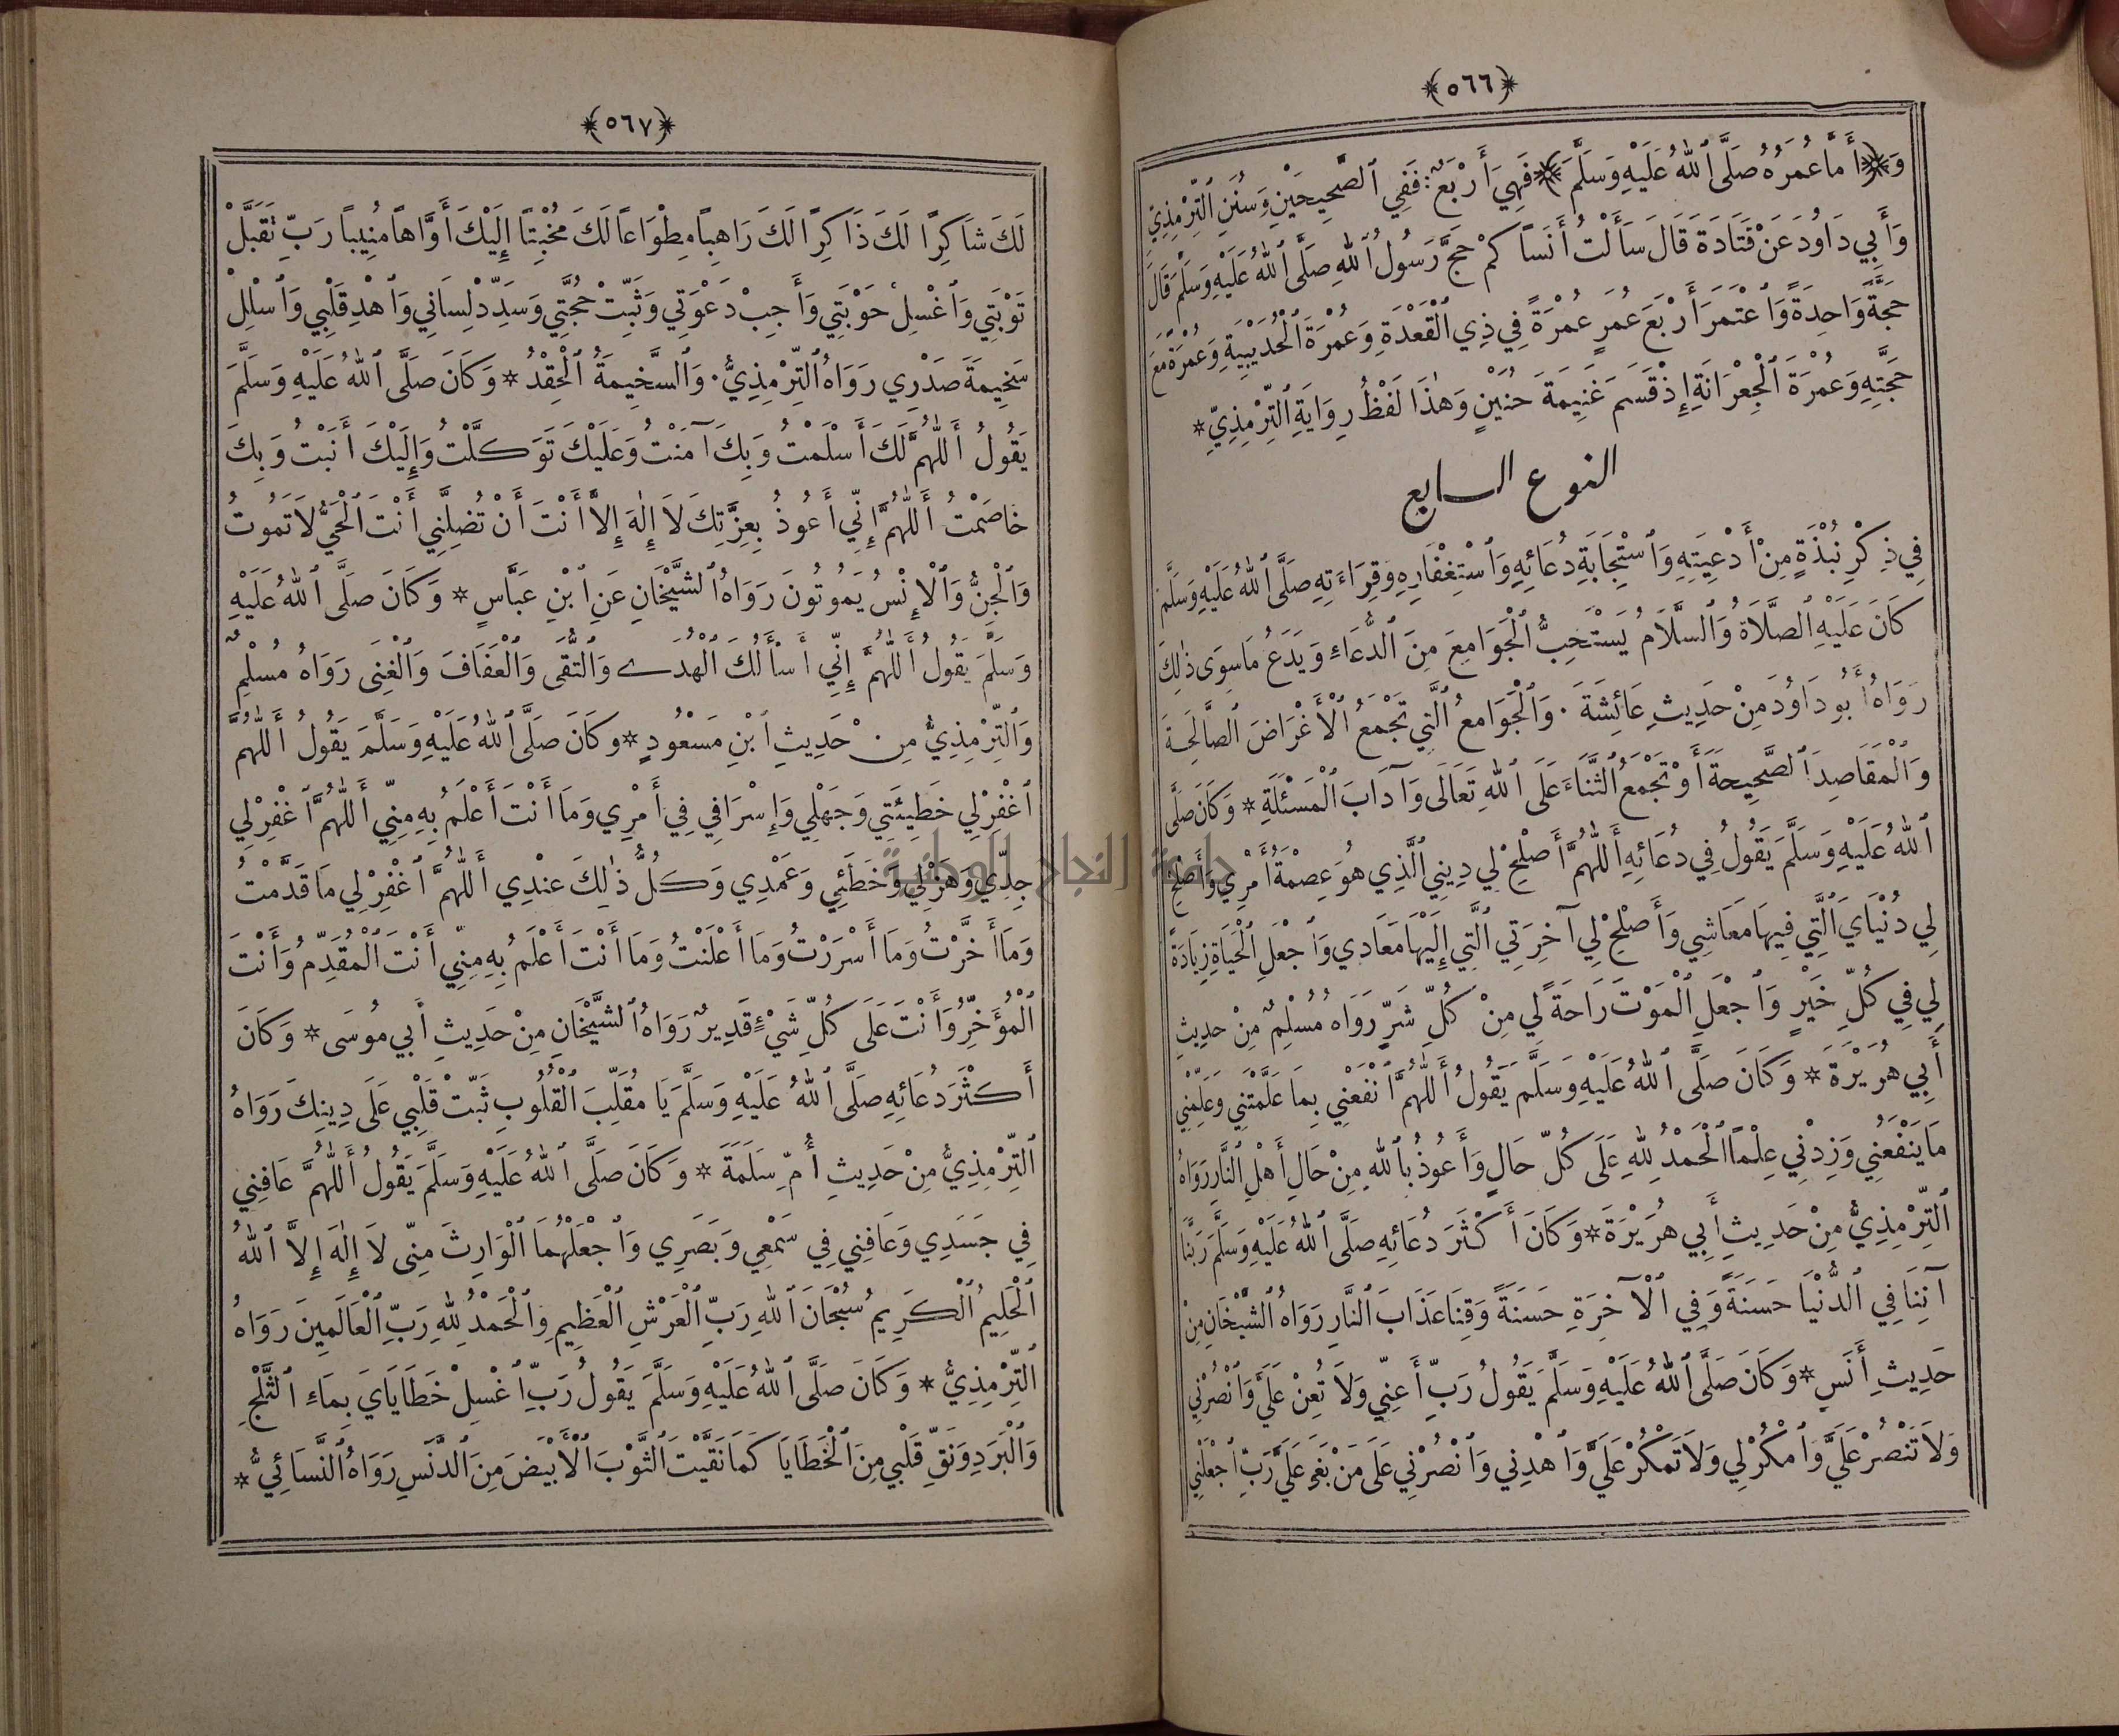 ﴿٥٦٦﴾
وَ﴿أَمَّا عُمَرُهُ صَلَّى ٱللهُ عَلَيْهِ وَسَلَّمَ﴾ فَهِيَ أَرْبَعٌ: فَفِي ٱلصَّحِيحَيْنِ وَسُنَنِ ٱلتِّرْمِذِيِّ
وَأَبِي دَاوُدَ عَنْ قَتَادَةَ قَالَ سَأَلْتُ أَنَسًا كَمْ حَجَّ رَسُولُ ٱللهِ صَلَّى ٱللهُ عَلَيْهِ وَسَلَّمَ قَالَ
حَجَّةً وَاحِدَةً وَٱعْتَمَرَ أَرْبَعَ عُمَرٍ عُمْرَةً فِي ذِي ٱلْقَعْدَةِ وَعُمْرَةَ ٱلْحُدَيْبِيَةِ وَعُمْرَةً مَعَ
حَجَّتِهِ وَعُمْرَةَ ٱلْجِعْرَانَةِ إِذْ قَسَمَ غَنِيمَةَ حُنَيْنٍ وَهٰذَا لَفْظُ رِوَايَةِ ٱلتِّرْمِذِيِّ *
النوع السابع
فِي ذِكْرِ نُبْذَةٍ مِنْ أَدْعِيَتِهِ وَٱسْتِجَابَةِ دُعَائِهِ وَٱسْتِغْفَارِهِ وَقِرَاءَتِهِ صَلَّى ٱللهُ عَلَيْهِ وَسَلَّمَ
كَانَ عَلَيْهِ ٱلصَّلَاةُ وَٱلسَّلَامُ يَسْتَحِبُّ ٱلْجَوَامِعَ مِنَ ٱلدُّعَاءِ وَيَدَعُ مَا سِوَى ذٰلِكَ
رَوَاهُ أَبُو دَاوُدَ مِنْ حَدِيثِ عَائِشَةَ . وَٱلْجَوَامِعُ ٱلَّتِي تَجْمَعُ ٱلْأَغْرَاضَ ٱلصَّالِحَةَ
وَٱلْمَقَاصِدَ ٱلصَّحِيحَةَ أَوْ تَجْمَعُ ٱلثَّنَاءَ عَلَى ٱللهِ تَعَالَى وَآدَابَ ٱلْمَسْئَلَةِ * وَكَانَ صَلَّى
ٱللهُ عَلَيْهِ وَسَلَّمَ يَقُولُ فِي دُعَائِهِ أَللّٰهُمَّ أَصْلِحْ لِي دِينِي ٱلَّذِي هُوَ عِصْمَةُ أَمْرِي وَأَصْلِحْ
لِي دُنْيَايَ ٱلَّتِي فِيهَا مَعَاشِي وَأَصْلِحْ لِي آخِرَتِي ٱلَّتِي إِلَيْهَا مَعَادِي وَٱجْعَلِ ٱلْحَيَاةَ زِيَادَةً
لِي فِي كُلِّ خَيْرٍ وَٱجْعَلِ ٱلْمَوْتَ رَاحَةً لِي مِنْ كُلِّ شَرٍّ رَوَاهُ مُسْلِمٌ مِنْ حَدِيثِ
أَبِي هُرَيْرَةَ * وَكَانَ صَلَّى ٱللهُ عَلَيْهِ وَسَلَّمَ يَقُولُ أَللّٰهُمَّ ٱنْفَعْنِي بِمَا عَلَّمْتَنِي وَعَلِّمْنِي
مَا يَنْفَعُنِي وَزِدْنِي عِلْمًا ٱلْحَمْدُ لِلهِ عَلَى كُلِّ حَالٍ وَأَعُوذُ بِٱللهِ مِنْ حَالِ أَهْلِ ٱلنَّارِ رَوَاهُ
ٱلتِّرْمِذِيُّ مِنْ حَدِيثِ أَبِي هُرَيْرَةَ * وَكَانَ أَكْثَرَ دُعَائِهِ صَلَّى ٱللهُ عَلَيْهِ وَسَلَّمَ رَبَّنَا
آتِنَا فِي ٱلدُّنْيَا حَسَنَةً وَفِي ٱلْآخِرَةِ حَسَنَةً وَقِنَا عَذَابَ ٱلنَّارِ رَوَاهُ ٱلشَّيْخَانِ مِنْ
حَدِيثِ أَنَسٍ * وَكَانَ صَلَّى ٱللهُ عَلَيْهِ وَسَلَّمَ يَقُولُ رَبِّ أَعِنِّي وَلَا تُعِنْ عَلَيَّ وَٱنْصُرْنِي
وَلَا تَنْصُرْ عَلَيَّ وَٱمْكُرْ لِي وَلَا تَمْكُرْ عَلَيَّ وَٱهْدِنِي وَٱنْصُرْنِي عَلَى مَنْ بَغَى عَلَيَّ رَبِّ ٱجْعَلْنِي
﴿٥٦٧﴾
لَكَ شَاكِرًا لَكَ ذَاكِرًا لَكَ رَاهِبًا مِطْوَاعًا لَكَ مُخْبِتًا إِلَيْكَ أَوَّاهًا مُنِيبًا رَبِّ تَقَبَّلْ
تَوْبَتِي وَٱغْسِلْ حَوْبَتِي وَأَجِبْ دَعْوَتِي وَثَبِّتْ حُجَّتِي وَسَدِّدْ لِسَانِي وَٱهْدِ قَلْبِي وَٱسْلِلْ
سَخِيمَةَ صَدْرِي رَوَاهُ ٱلتِّرْمِذِيُّ . وَٱلسَّخِيمَةُ ٱلْحِقْدُ * وَكَانَ صَلَّى ٱللهُ عَلَيْهِ وَسَلَّمَ
يَقُولُ أَللّٰهُمَّ لَكَ أَسْلَمْتُ وَبِكَ آمَنْتُ وَعَلَيْكَ تَوَكَّلْتُ وَإِلَيْكَ أَنَبْتُ وَبِكَ
خَاصَمْتُ أَللّٰهُمَّ إِنِّي أَعُوذُ بِعِزَّتِكَ لَا إِلٰهَ إِلَّا أَنْتَ أَنْ تُضِلَّنِي أَنْتَ ٱلْحَيُّ لَا تَمُوتُ
وَٱلْجِنُّ وَٱلْإِنْسُ يَمُوتُونَ رَوَاهُ ٱلشَّيْخَانِ عَنِ ٱبْنِ عَبَّاسٍ * وَكَانَ صَلَّى ٱللهُ عَلَيْهِ
وَسَلَّمَ يَقُولُ أَللّٰهُمَّ إِنِّي أَسْأَلُكَ ٱلْهُدَى وَٱلتُّقَى وَٱلْعَفَافَ وَٱلْغِنَى رَوَاهُ مُسْلِمٌ
وَٱلتِّرْمِذِيُّ مِنْ حَدِيثِ ٱبْنِ مَسْعُودٍ * وَكَانَ صَلَّى ٱللهُ عَلَيْهِ وَسَلَّمَ يَقُولُ أَللّٰهُمَّ
ٱغْفِرْ لِي خَطِيئَتِي وَجَهْلِي وَإِسْرَافِي فِي أَمْرِي وَمَا أَنْتَ أَعْلَمُ بِهِ مِنِّي أَللّٰهُمَّ ٱغْفِرْ لِي
جِدِّي وَهَزْلِي وَخَطَئِي وَعَمْدِي وَكُلُّ ذٰلِكَ عِنْدِي أَللّٰهُمَّ ٱغْفِرْ لِي مَا قَدَّمْتُ
وَمَا أَخَّرْتُ وَمَا أَسْرَرْتُ وَمَا أَعْلَنْتُ وَمَا أَنْتَ أَعْلَمُ بِهِ مِنِّي أَنْتَ ٱلْمُقَدِّمُ وَأَنْتَ
ٱلْمُؤَخِّرُ وَأَنْتَ عَلَى كُلِّ شَيْءٍ قَدِيرٌ رَوَاهُ ٱلشَّيْخَانِ مِنْ حَدِيثِ أَبِي مُوسَى * وَكَانَ
أَكْثَرَ دُعَائِهِ صَلَّى ٱللهُ عَلَيْهِ وَسَلَّمَ يَا مُقَلِّبَ ٱلْقُلُوبِ ثَبِّتْ قَلْبِي عَلَى دِينِكَ رَوَاهُ
ٱلتِّرْمِذِيُّ مِنْ حَدِيثِ أُمِّ سَلَمَةَ * وَكَانَ صَلَّى ٱللهُ عَلَيْهِ وَسَلَّمَ يَقُولُ أَللّٰهُمَّ عَافِنِي
فِي جَسَدِي وَعَافِنِي فِي سَمْعِي وَبَصَرِي وَٱجْعَلْهُمَا ٱلْوَارِثَ مِنِّي لَا إِلٰهَ إِلَّا ٱللهُ
ٱلْحَلِيمُ ٱلْكَرِيمُ سُبْحَانَ ٱللهِ رَبِّ ٱلْعَرْشِ ٱلْعَظِيمِ وَٱلْحَمْدُ لِلهِ رَبِّ ٱلْعَالَمِينَ رَوَاهُ
ٱلتِّرْمِذِيُّ * وَكَانَ صَلَّى ٱللهُ عَلَيْهِ وَسَلَّمَ يَقُولُ رَبِّ ٱغْسِلْ خَطَايَايَ بِمَاءِ ٱلثَّلْجِ
وَٱلْبَرَدِ وَنَقِّ قَلْبِي مِنَ ٱلْخَطَايَا كَمَا نَقَّيْتَ ٱلثَّوْبَ ٱلْأَبْيَضَ مِنَ ٱلدَّنَسِ رَوَاهُ ٱلنَّسَائِيُّ *
جامعة النجاح الوطنية